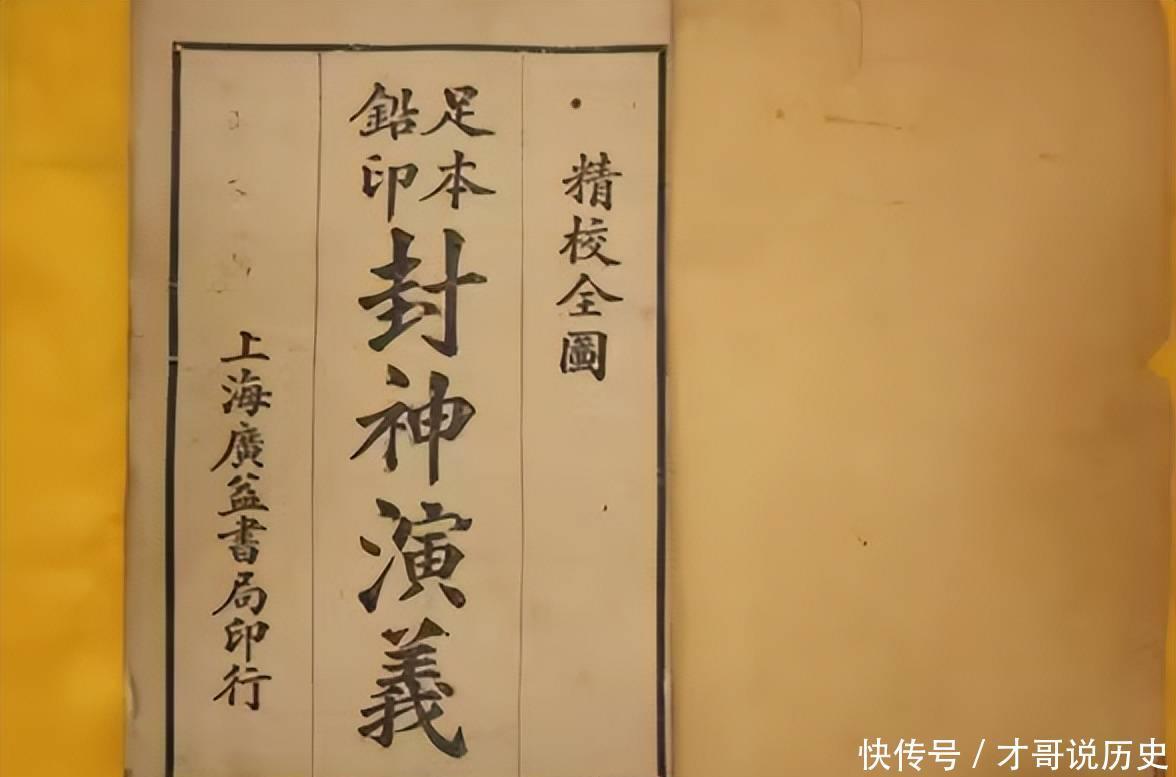 精校全圖
足本
鉛印
封神演義
上海廣益書局印行
快传号 / 才哥说历史